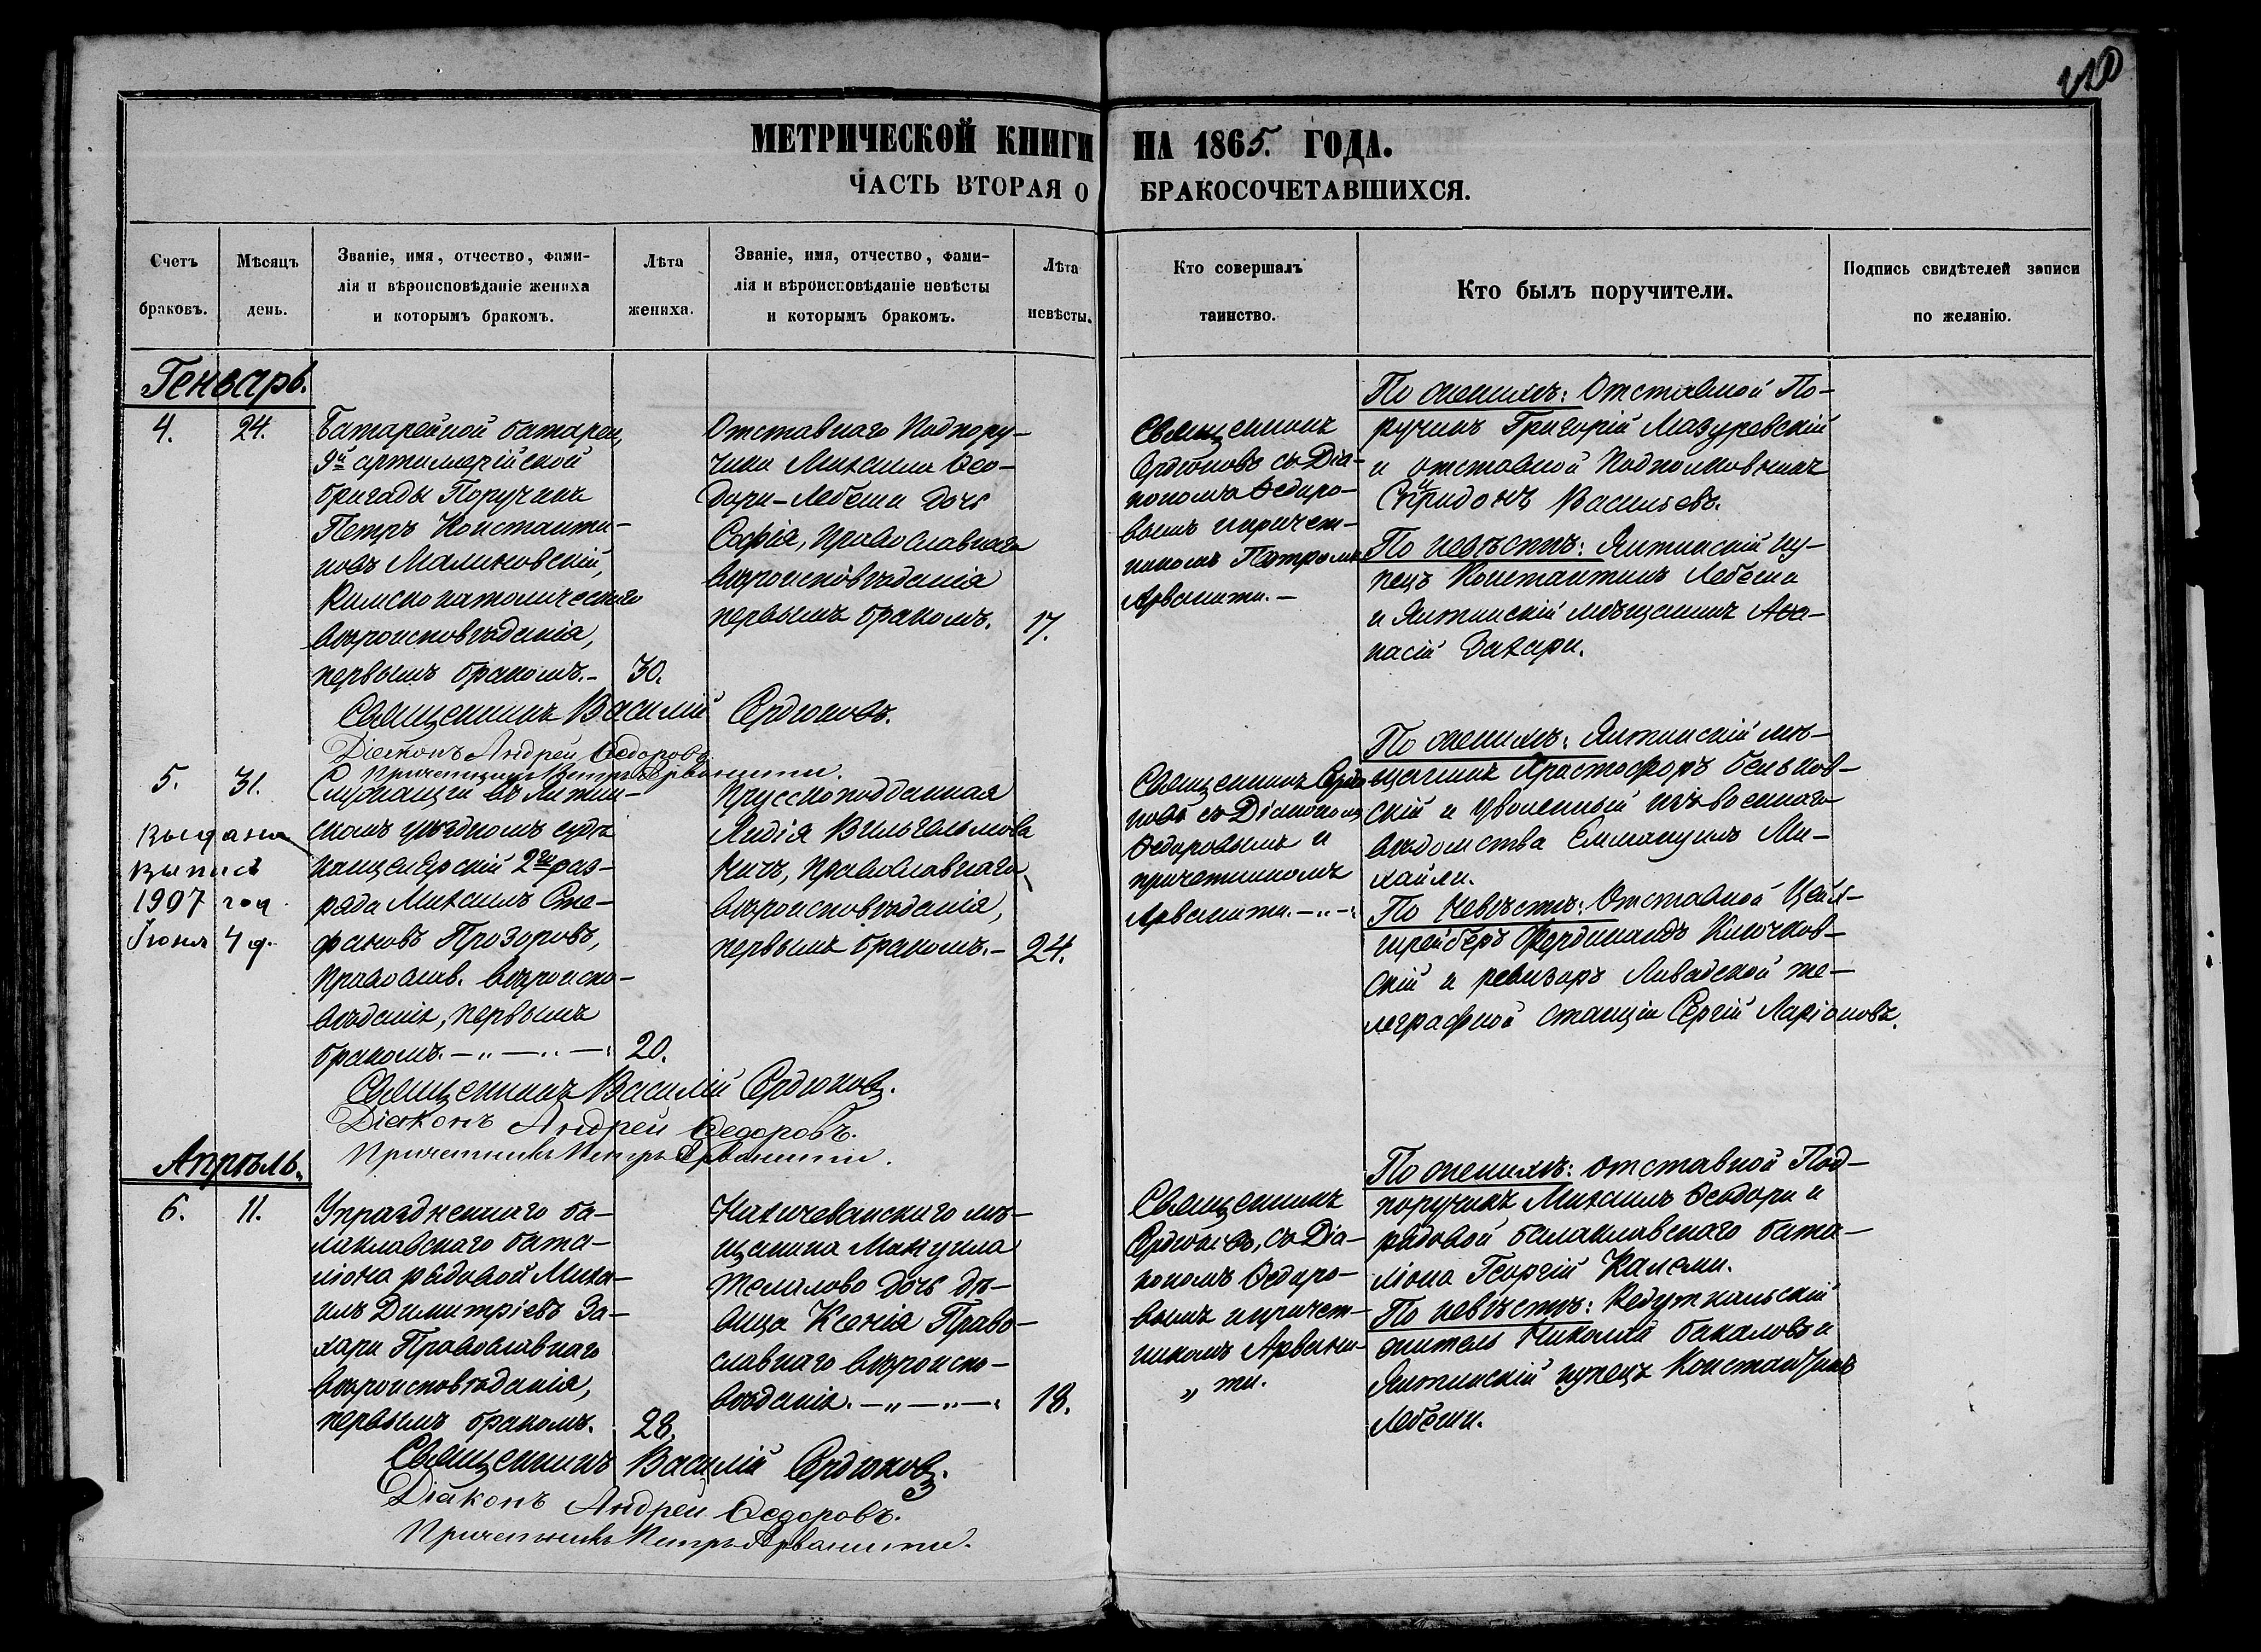 МЕТРИЧЕСКОЙ КНИГИ НА 1865. ГОДА.
ЧАСТЬ ВТОРАЯ О БРАКОСОЧЕТАВШИХСЯ.
Счетъ
браковъ.
Мѣсяцъ
день.
Званіе, имя, отчество, фами-
лія и вѣроисповѣданіе жениха
и которымъ бракомъ.
Лѣта
жениха.
Званіе, имя, отчество, фами-
лія и вѣроисповѣданіе невѣсты
и которымъ бракомъ.
Лѣта
невѣсты.
Кто совершалъ
таинство.
Кто былъ поручители.
Подпись свидѣтелей записи
по желанію.
Генварь.
4.
24.
Батарейной батареи,
9й артиллерійской
бригады Поручикъ
Петръ Константи-
новъ Малиновскій,
Римскокатолическаго
вѣроисповѣданія,
первымъ бракомъ.-
30.
Отставнаго Подпору-
чика Михаила Ѳео-
дори-Лебеши дочь
Софія, Православнаго
вѣроисповѣданія
первымъ бракомъ.
17.
Священникъ
Сердюковъ съ Діа-
кономъ Ѳедоро-
вымъ и причет-
никомъ Петромъ
Арванити.-
По женихѣ: Отставной По-
ручикъ Григорій Мазуревскій
и отставной Подполковникъ
Спиридонъ Васильевъ.
По невѣстѣ: Ялтинскій ку-
пецъ Константинъ Лебеши
и Ялтинскій мѣщанинъ Аѳа-
насій Захари.
Священникъ Василій Сердюковъ.
Діаконъ Андрей Ѳедоровъ.
Причетникъ Петръ Арванити.
5.
31.
Выдана
выпись
1907 год
Іюня 4 д.
Служащій въ Ялтин-
скомъ уѣздномъ судѣ
канцелярскій 2го раз-
ряда Михаилъ Сте-
фановъ Прозоровъ,
Православ. вѣроиспо-
вѣданія, первымъ
бракомъ.
20.
Прусскоподданная
Лидія Вильгельмова
Ничъ, Православнаго
вѣроисповѣданія,
первымъ бракомъ.-
24.
Священникъ Сердю-
ковъ съ Діакономъ
Ѳедоровымъ и
причетникомъ
Арванити.
По женихѣ: Ялтинскій мѣ-
щанинъ Христофоръ Бельков-
скій и уволенный изъ военнаго
вѣдомства Еммануилъ Ми-
хайли.
По невѣстѣ: Отставной Цейх-
шрейберъ Фердинандъ Клочков-
скій и ревизоръ Ливадской те-
леграфной станціи Сергій Ларіоновъ.
Священникъ Василій Сердюковъ.
Діаконъ Андрей Ѳедоровъ.
Причетникъ Петръ Арванити.
Апрѣль.
6.
11.
Упраздненнаго ба-
лаклавскаго бата-
ліона рядовой Миха-
илъ Димитріевъ За-
хари Православнаго
вѣроисповѣданія,
первымъ бракомъ.
28.
Нахичеванскаго мѣ-
щанина Мануила
дочь дѣ-
вица Ксенія Право-
славнаго вѣроиспо-
вѣданія.
18.
Священникъ
Сердюковъ, съ Діа-
кономъ Ѳедоро-
вымъ и причет-
никомъ Арвани-
„ ти.
По женихѣ: отставной Под-
поручикъ Михаилъ Ѳеодори и
рядовой балаклавскаго бата-
ліона Георгій Капели.
По невѣстѣ: Редуткальскій
житель Николай Бакаловъ и
Ялтинскій купецъ Константинъ
Лебеши.
Священникъ Василій Сердюковъ.
Діаконъ Андрей Ѳедоровъ.
Причетникъ Петръ Арванити.